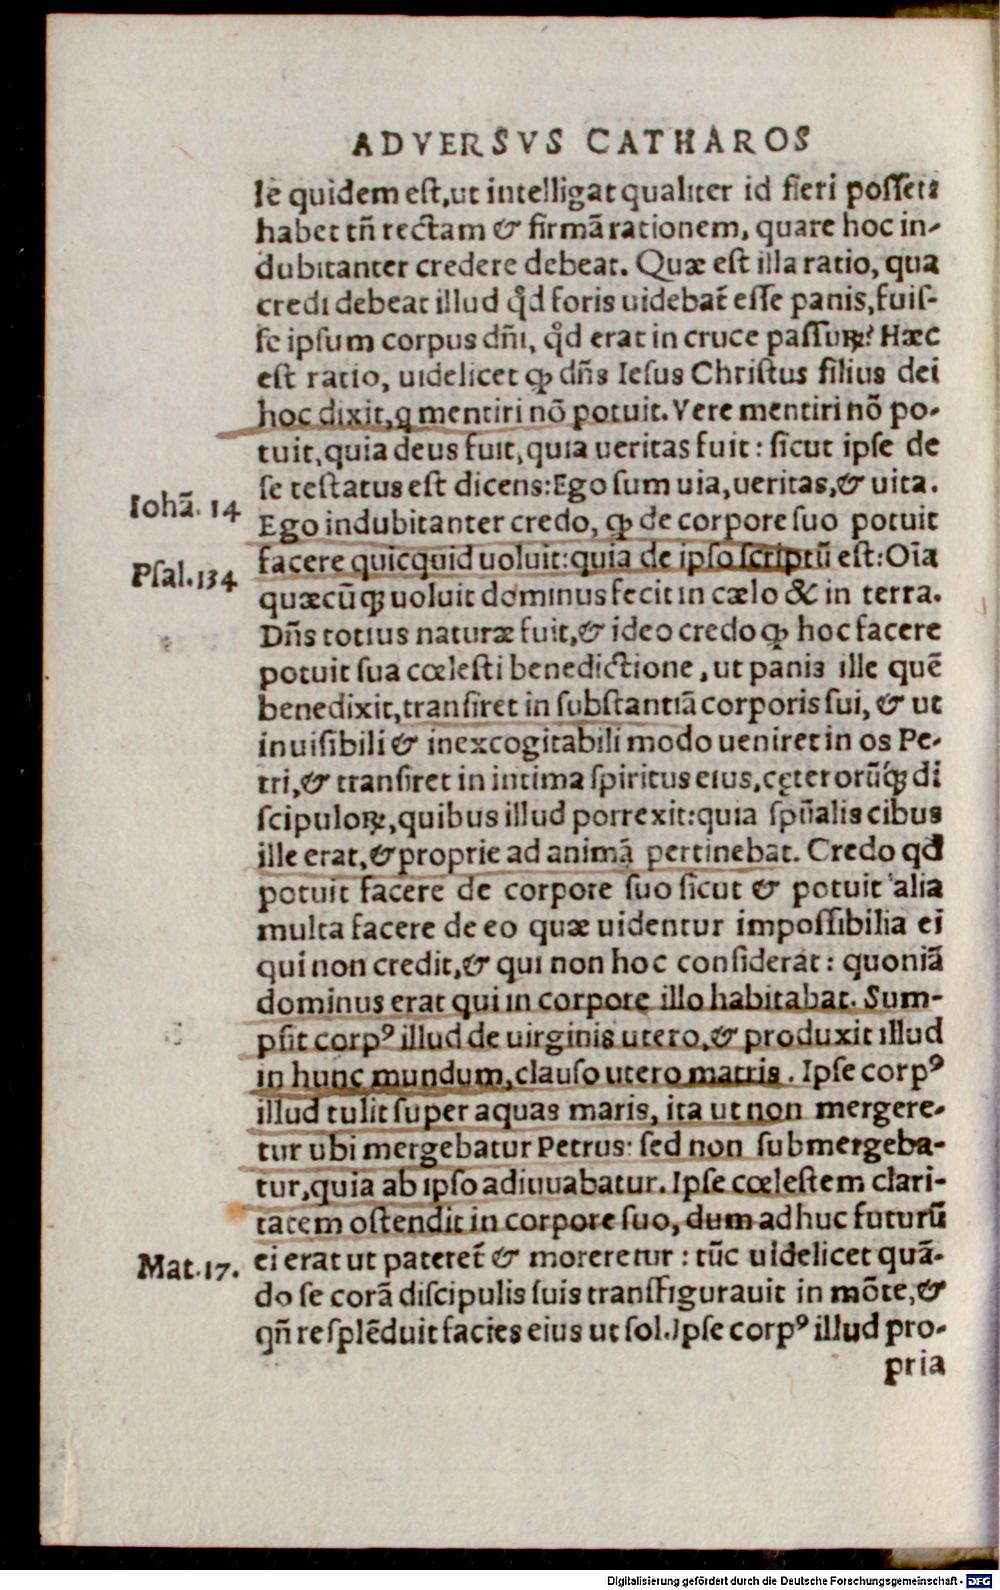 ADVERSVS CATHAROS
le quidem est, ut intelligat qualiter id fieri posset:
habet tñ rectam & firmā rationem, quare hoc in-
dubitanter credere debeat. Quæ est illa ratio, qua
credi debeat illud qd̛ foris uidebat̃ esse panis, fuis-
se ipsum corpus dñi, qd̛ erat in cruce passuꝝ? Hæc
est ratio, uidelicet ꝙ dñs Iesus Christus filius dei
hoc dixit, q mentiri nō potuit. Vere mentiri nō po-
tuit, quia deus fuit, quia ueritas fuit: sicut ipse de
se testatus est dicens: Ego sum uia, ueritas, & uita.
Iohā. 14
Ego indubitanter credo, ꝙ de corpore suo potuit
facere quicquid uoluit: quia de ipso scriptū est: Oĩa
Psal. 134
quæcūqꝫ uoluit dominus fecit in cælo & in terra.
Dñs totius naturæ fuit, & ideo credo ꝙ hoc facere
potuit sua cœlesti benedictione, ut panis ille quē
benedixit, transiret in substantiā corporis sui, & ut
inuisibili & inexcogitabili modo ueniret in os Pe-
tri, & transiret in intima spiritus eius, cęterorūqꝫ di
scipuloꝝ, quibus illud porrexit: quia spũalis cibus
ille erat, & proprie ad animā pertinebat. Credo qd
potuit facere de corpore suo sicut & potuit alia
multa facere de eo quæ uidentur impossibilia ei
qui non credit, & qui non hoc considerat: quoniā
dominus erat qui in corpore illo habitabat. Sum-
psit corpꝰ illud de uirginis utero, & produxit illud
in hunc mundum, clauso utero matris. Ipse corpꝰ
illud tulit super aquas maris, ita ut non mergere-
tur ubi mergebatur Petrus: sed non submergeba-
tur, quia ab ipso adiuuabatur. Ipse cœlestem clari-
tatem ostendit in corpore suo, dum adhuc futurū
ei erat ut pateret̃ & moreretur: tūc uidelicet quā-
Mat. 17.
do se corā discipulis suis transfigurauit in mōte, &
qñ resplēduit facies eius ut sol. Ipse corpꝰ illud pro-
pria
Digitalisierung gefördert durch die Deutsche Forschungsgemeinschaft - DFG